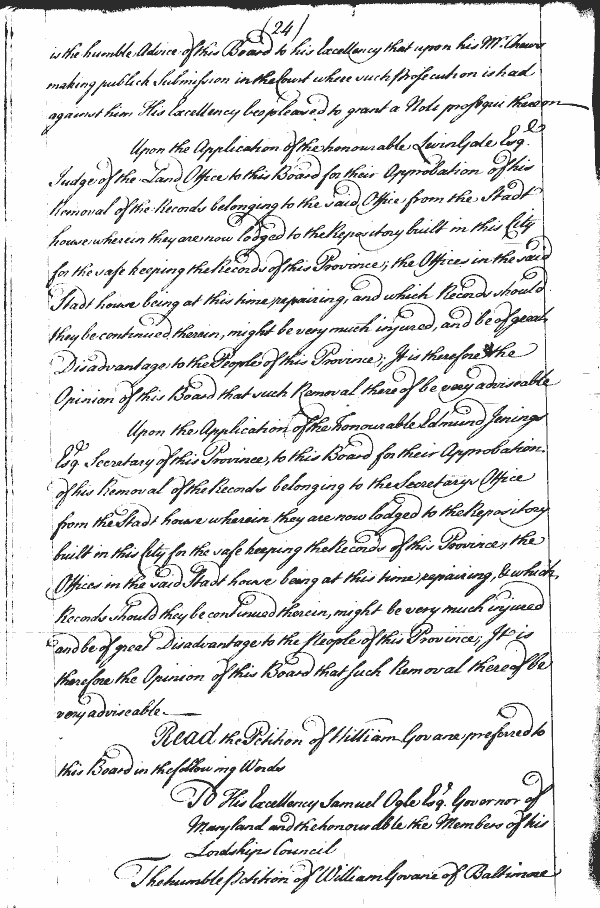 (24)
is the humble Advice of this Board to his Excellency that upon his Mr. Chews
making publick Submission in the Court where such Prosecution is had
against him His Excellency be pleased to grant a Noli prosequi thereon
Upon the Application of the honourable Levin Gale Esqr.
Judge of the Land Office to this Board for their Approbation of his
Removal of the Records belonging to the said Office from the Stadt
house wherein they are now lodged to the Repository built in this City
for the safe keeping the Records of this Province; the Offices in the said
Stadt house being at this time repairing, and which Records should
they be continued therein, might be very much injured, and be of great
Disadvantage to the People of this Province; It is therefore the
Opinion of this Board that such Removal thereof be very adviseable
Upon the Application of the Honourable Edmund Jenings
Esqr. Secretary of this Province, to this Board for their Approbation
of his Removal of the Records belonging to the Secretarys Office
from the Stadt house wherein they are now lodged to the Repository
built in this City for the safe keeping the Records of this Province, the
Offices in the said Stadt house being at this time repairing, & which
Records should they be continued therein, might be very much injured
and be of great Disadvantage to the People of this Province; It is
therefore the Opinion of this Board that such Removal thereof be
very adviseable
Read the Petition of William Govane preferred to
this Board in the following Words
To His Excellency Samuel Ogle Esqr. Governor of
Maryland and the honourable the Members of his
Lordships Council
The humble Petition of William Govane of Baltimore